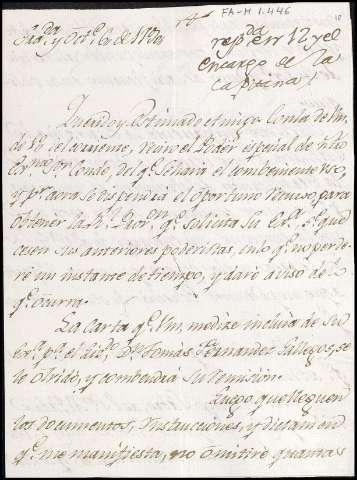 FA-M 1.446
y Octe. 6 de
rta.
respda. en 12 y el
encargo de la
Querido y estimado amigo: Con la de Vm.
de 1º del corriente, recivo el Poder especial de ntro.
Conde, del qe. se hara el combeniente uso,
y pr. aora se dispondrá el oportuno recurso para
obtener la Rl. qe. solicita su Exa.
sus anteriores poderistas, en lo qe. no perde
ré un instante de tiempo, y daré aviso de lo
qe. ocurra.
La carta qe. Vm. me dize incluía de su
Exa. pa. el Dn. Tomás Fernandez Gallegos, se
le olvidó, y combendrá su remisión.
Luego que lleguen
los documentos, Instrucciones, y dictamen
qe. me manifiesta, no omitiré quantas